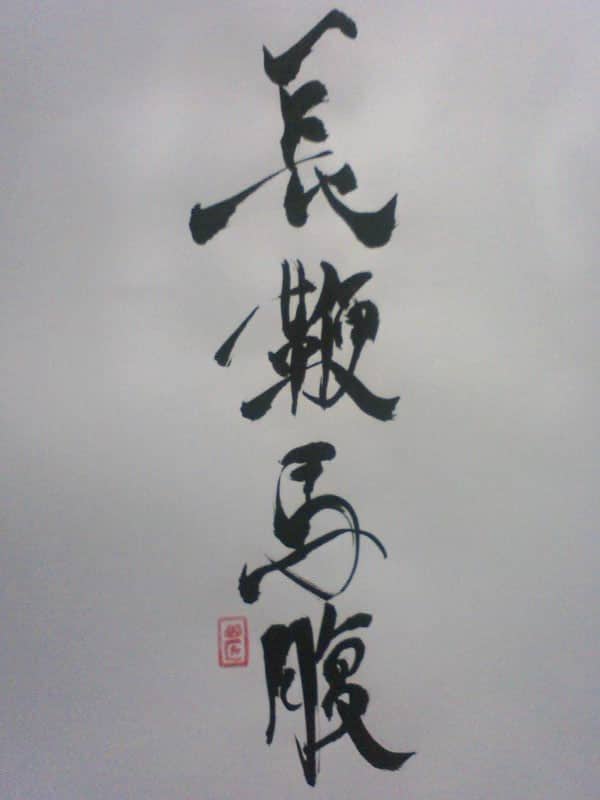 長鞭馬腹